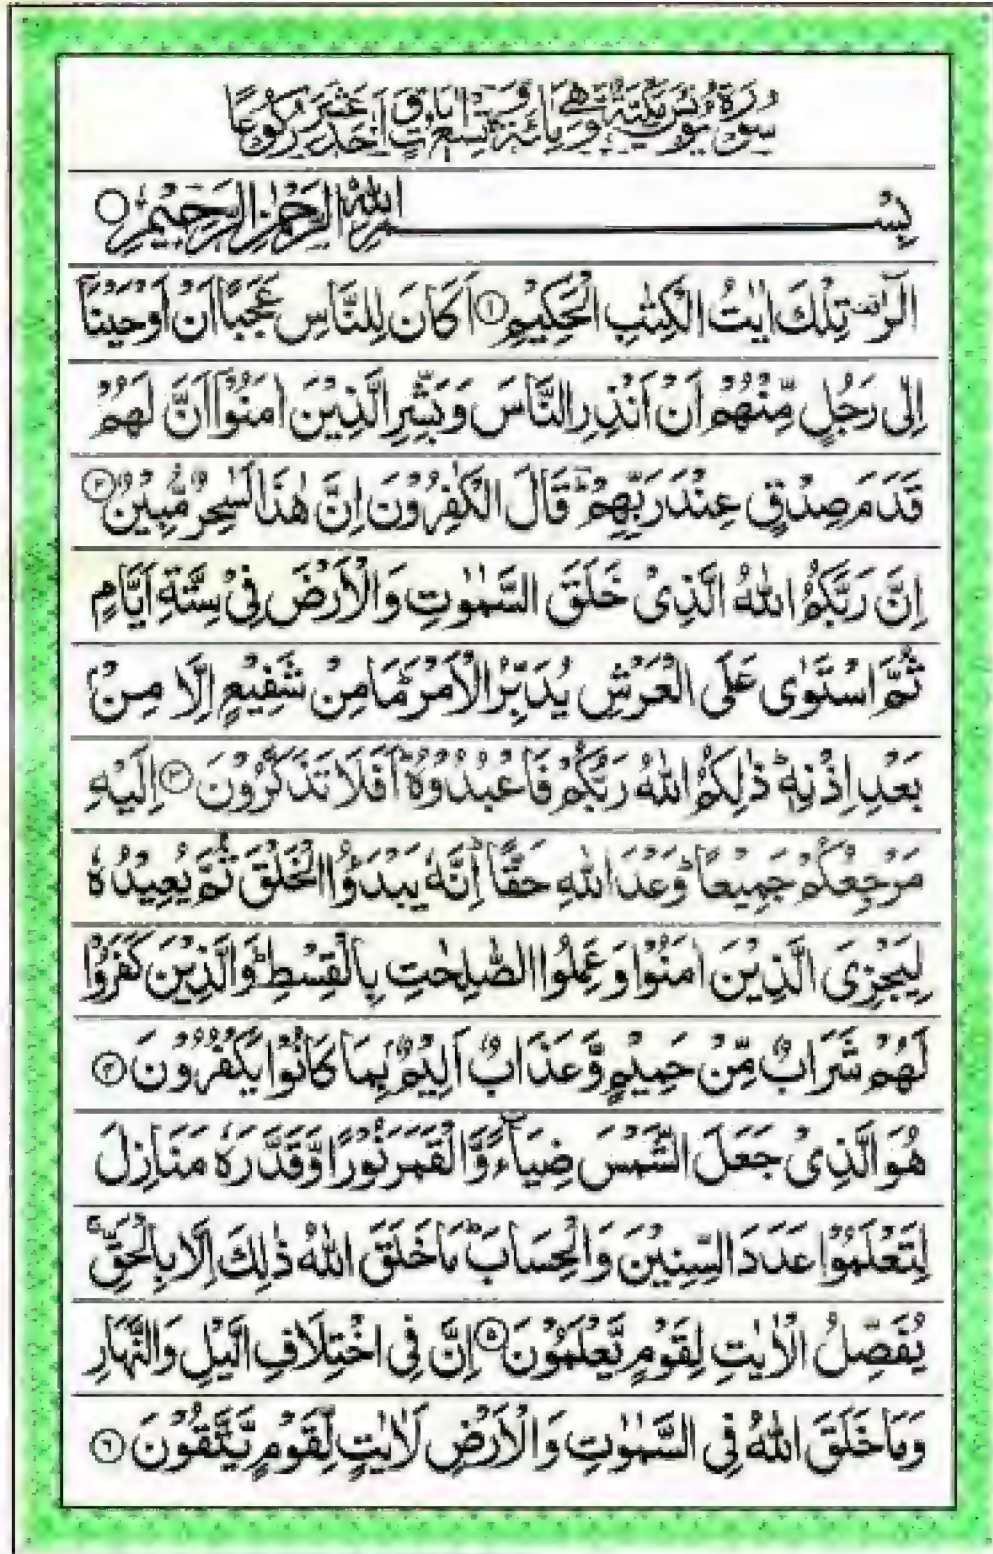 سُوْرَةُ يُوْنُسَ مَكِّيَّةٌ وَّهِيَ مِائَةٌ وَّتِسْعُ اٰيَاتٍ وَّاَحَدَ عَشَرَ رُكُوْعًا
بِسْمِ اللّٰهِ الرَّحْمٰنِ الرَّحِيْمِ ○
الٓرٰ ۫ تِلْكَ اٰيٰتُ الْكِتٰبِ الْحَكِيْمِ ۝۱ اَكَانَ لِلنَّاسِ عَجَبًا اَنْ اَوْحَيْنَاۤ
اِلٰى رَجُلٍ مِّنْهُمْ اَنْ اَنْذِرِ النَّاسَ وَبَشِّرِ الَّذِيْنَ اٰمَنُوْۤا اَنَّ لَهُمْ
قَدَمَ صِدْقٍ عِنْدَ رَبِّهِمْ ؕ قَالَ الْكٰفِرُوْنَ اِنَّ هٰذَا لَسٰحِرٌ مُّبِيْنٌ ۝۲
اِنَّ رَبَّكُمُ اللّٰهُ الَّذِىْ خَلَقَ السَّمٰوٰتِ وَالْاَرْضَ فِىْ سِتَّةِ اَيَّامٍ
ثُمَّ اسْتَوٰى عَلَى الْعَرْشِ يُدَبِّرُ الْاَمْرَ ؕ مَا مِنْ شَفِيْعٍ اِلَّا مِنْۢ
بَعْدِ اِذْنِهٖ ؕ ذٰلِكُمُ اللّٰهُ رَبُّكُمْ فَاعْبُدُوْهُ ؕ اَفَلَا تَذَكَّرُوْنَ ۝۳ اِلَيْهِ
مَرْجِعُكُمْ جَمِيْعًا ؕ وَعْدَ اللّٰهِ حَقًّا ؕ اِنَّهٗ يَبْدَؤُا الْخَلْقَ ثُمَّ يُعِيْدُهٗ
لِيَجْزِىَ الَّذِيْنَ اٰمَنُوْا وَعَمِلُوا الصّٰلِحٰتِ بِالْقِسْطِ ؕ وَالَّذِيْنَ كَفَرُوْا
لَهُمْ شَرَابٌ مِّنْ حَمِيْمٍ وَّعَذَابٌ اَلِيْمٌۢ بِمَا كَانُوْا يَكْفُرُوْنَ ۝۴
هُوَ الَّذِىْ جَعَلَ الشَّمْسَ ضِيَآءً وَّالْقَمَرَ نُوْرًا وَّقَدَّرَهٗ مَنَازِلَ
لِتَعْلَمُوْا عَدَدَ السِّنِيْنَ وَالْحِسَابَ ؕ مَا خَلَقَ اللّٰهُ ذٰلِكَ اِلَّا بِالْحَقِّ ۚ
يُفَصِّلُ الْاٰيٰتِ لِقَوْمٍ يَّعْلَمُوْنَ ۝۵ اِنَّ فِى اخْتِلَافِ الَّيْلِ وَالنَّهَارِ
وَمَا خَلَقَ اللّٰهُ فِى السَّمٰوٰتِ وَالْاَرْضِ لَاٰيٰتٍ لِّقَوْمٍ يَّتَّقُوْنَ ۝۶